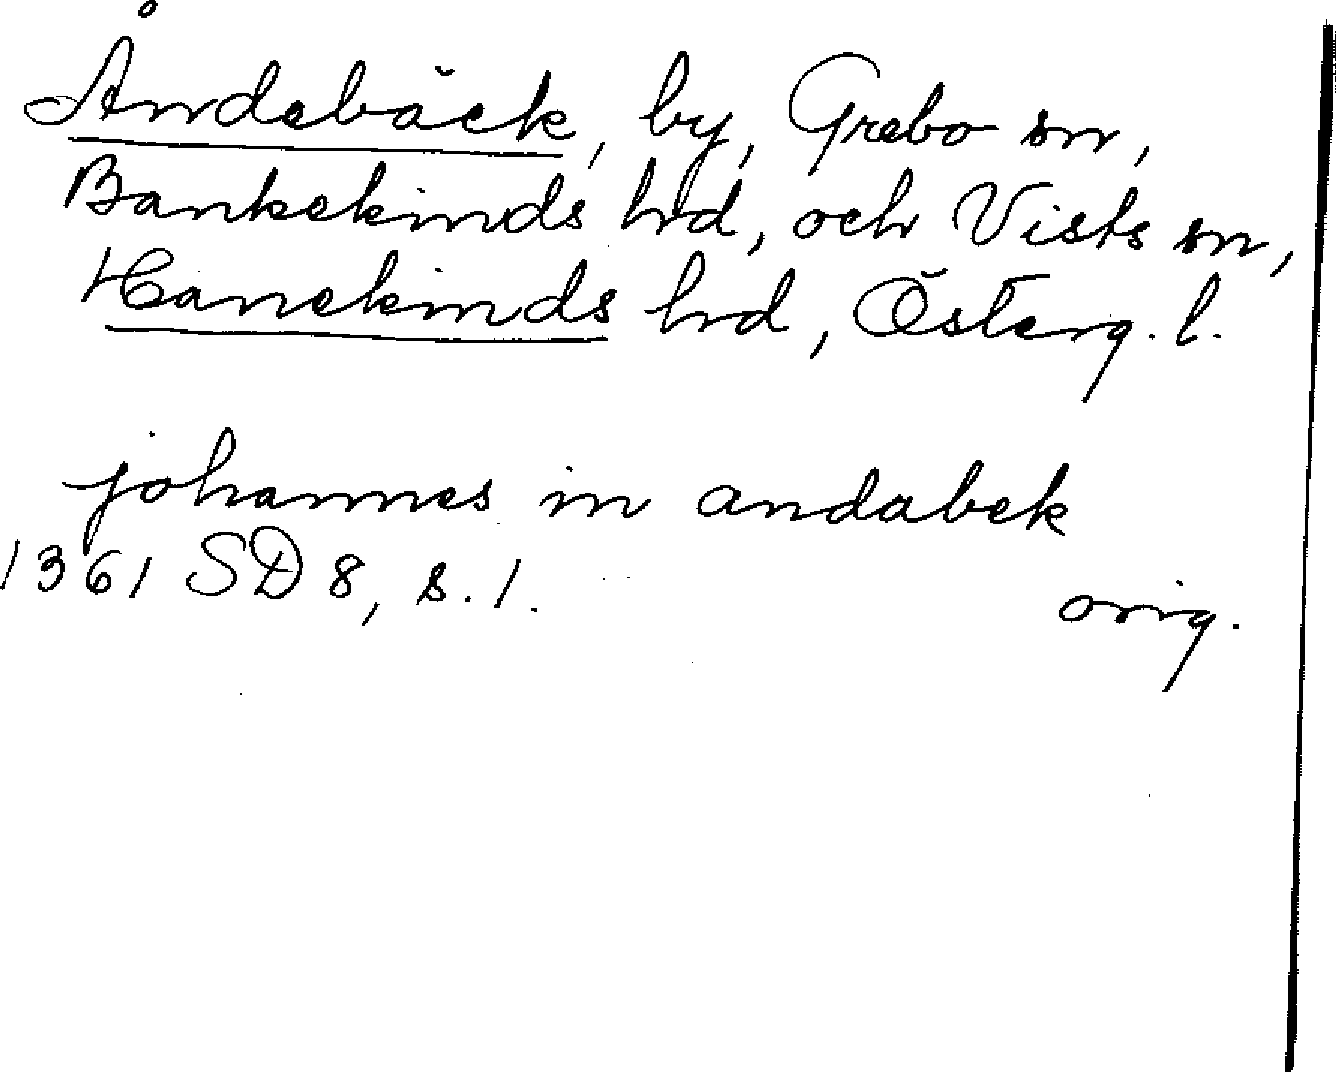 Åndebäck, by, Grebo sn,
Bankekinds hd, och Vists sn,
Hanekinds hd, Österg. l.
johannes in andabek
1361 SD 8, s. 1.
orig.